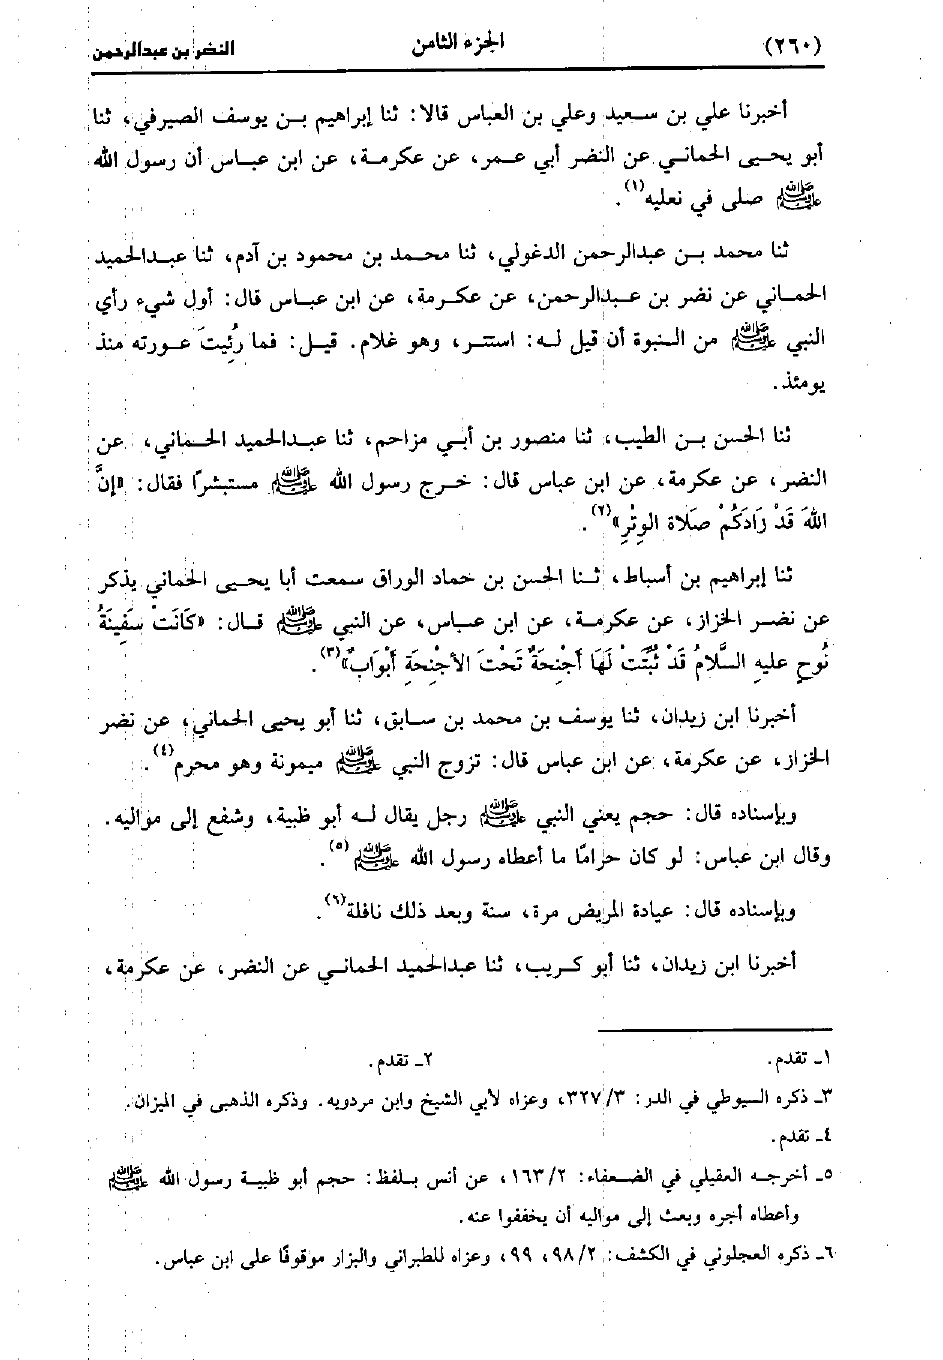 (٢٦٠) الجزء الثامن النضر بن عبدالرحمن
أخبرنا علي بن سعيد وعلي بن العباس قالا: ثنا إبراهيم بن يوسف الصيرفي، ثنا
أبو يحيى الحماني عن النضر أبي عمر، عن عكرمة، عن ابن عباس أن رسول الله
ﷺ صلى في نعليه(١).
ثنا محمد بن عبدالرحمن الدغولي، ثنا محمد بن محمود بن آدم، ثنا عبدالحميد
الحماني عن نضر بن عبدالرحمن، عن عكرمة، عن ابن عباس قال: أول شيء رأي
النبي ﷺ من النبوة أن قيل له: استتر، وهو غلام. قيل: فما رُئيتَ عورته منذ
يومئذ.
ثنا الحسن بن الطيب، ثنا منصور بن أبي مزاحم، ثنا عبدالحميد الحماني، عن
النضر، عن عكرمة، عن ابن عباس قال: خرج رسول الله ﷺ مستبشرًا فقال: «إنَّ
اللهَ قَدْ زَادَكُمْ صَلَاة الوِتْرِ»(٢).
ثنا إبراهيم بن أسباط، ثنا الحسن بن حماد الوراق سمعت أبا يحيى الحماني يذكر
عن نضر الخزاز، عن عكرمة، عن ابن عباس، عن النبي ﷺ قال: «كَانَتْ سَفِينَةُ
نُوحٍ عليهِ السَّلامُ قَدْ ثُبِّتَتْ لَهَا أَجْنِحَةٌ تَحْتَ الأجْنِحَةِ أَبْوَابٌ»(٣).
أخبرنا ابن زيدان، ثنا يوسف بن محمد بن سابق، ثنا أبو يحيى الحماني، عن نضر
الخزاز، عن عكرمة، عن ابن عباس قال: تزوج النبي ﷺ ميمونة وهو محرم(٤).
وبإسناده قال: حجم يعني النبي ﷺ رجل يقال له أبو ظبية، وشفع إلى مواليه.
وقال ابن عباس: لو كان حرامًا ما أعطاه رسول الله ﷺ(٥).
وبإسناده قال: عيادة المريض مرة، سنة وبعد ذلك نافلة(٦).
أخبرنا ابن زيدان، ثنا أبو كريب، ثنا عبدالحميد الحماني عن النضر، عن عكرمة،
١ـ تقدم. ٢ـ تقدم.
٣ـ ذكره السيوطي في الدر: ٣٢٧/٣، وعزاه لأبي الشيخ وابن مردويه. وذكره الذهبي في الميزان.
٤ـ تقدم.
٥ـ أخرجه العقيلي في الضعفاء: ١٦٣/٢، عن أنس بلفظ: حجم أبو ظبية رسول الله ﷺ
وأعطاه أجره وبعث إلى مواليه أن يخففوا عنه.
٦ـ ذكره العجلوني في الكشف: ٩٨/٢، ٩٩، وعزاه للطبراني والبزار موقوفًا على ابن عباس.